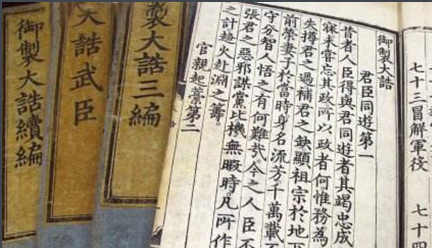 七十三冒解軍役 七十四
御製大誥
君臣同遊第一
昔者人臣得與君同遊者其竭忠成
寐未嘗忘其政所以政者何惟務為
失撙君之過補君之缺顯祖宗於地
前榮妻子於當時身名流芳千萬載
守分智人悟之有何難哉今之人臣不
張君之惡邪謀黨比機無暇時凡所作
之計趨火赴淵之籌
官親起藁第二
製大誥三編
大誥武臣
御製大誥續編